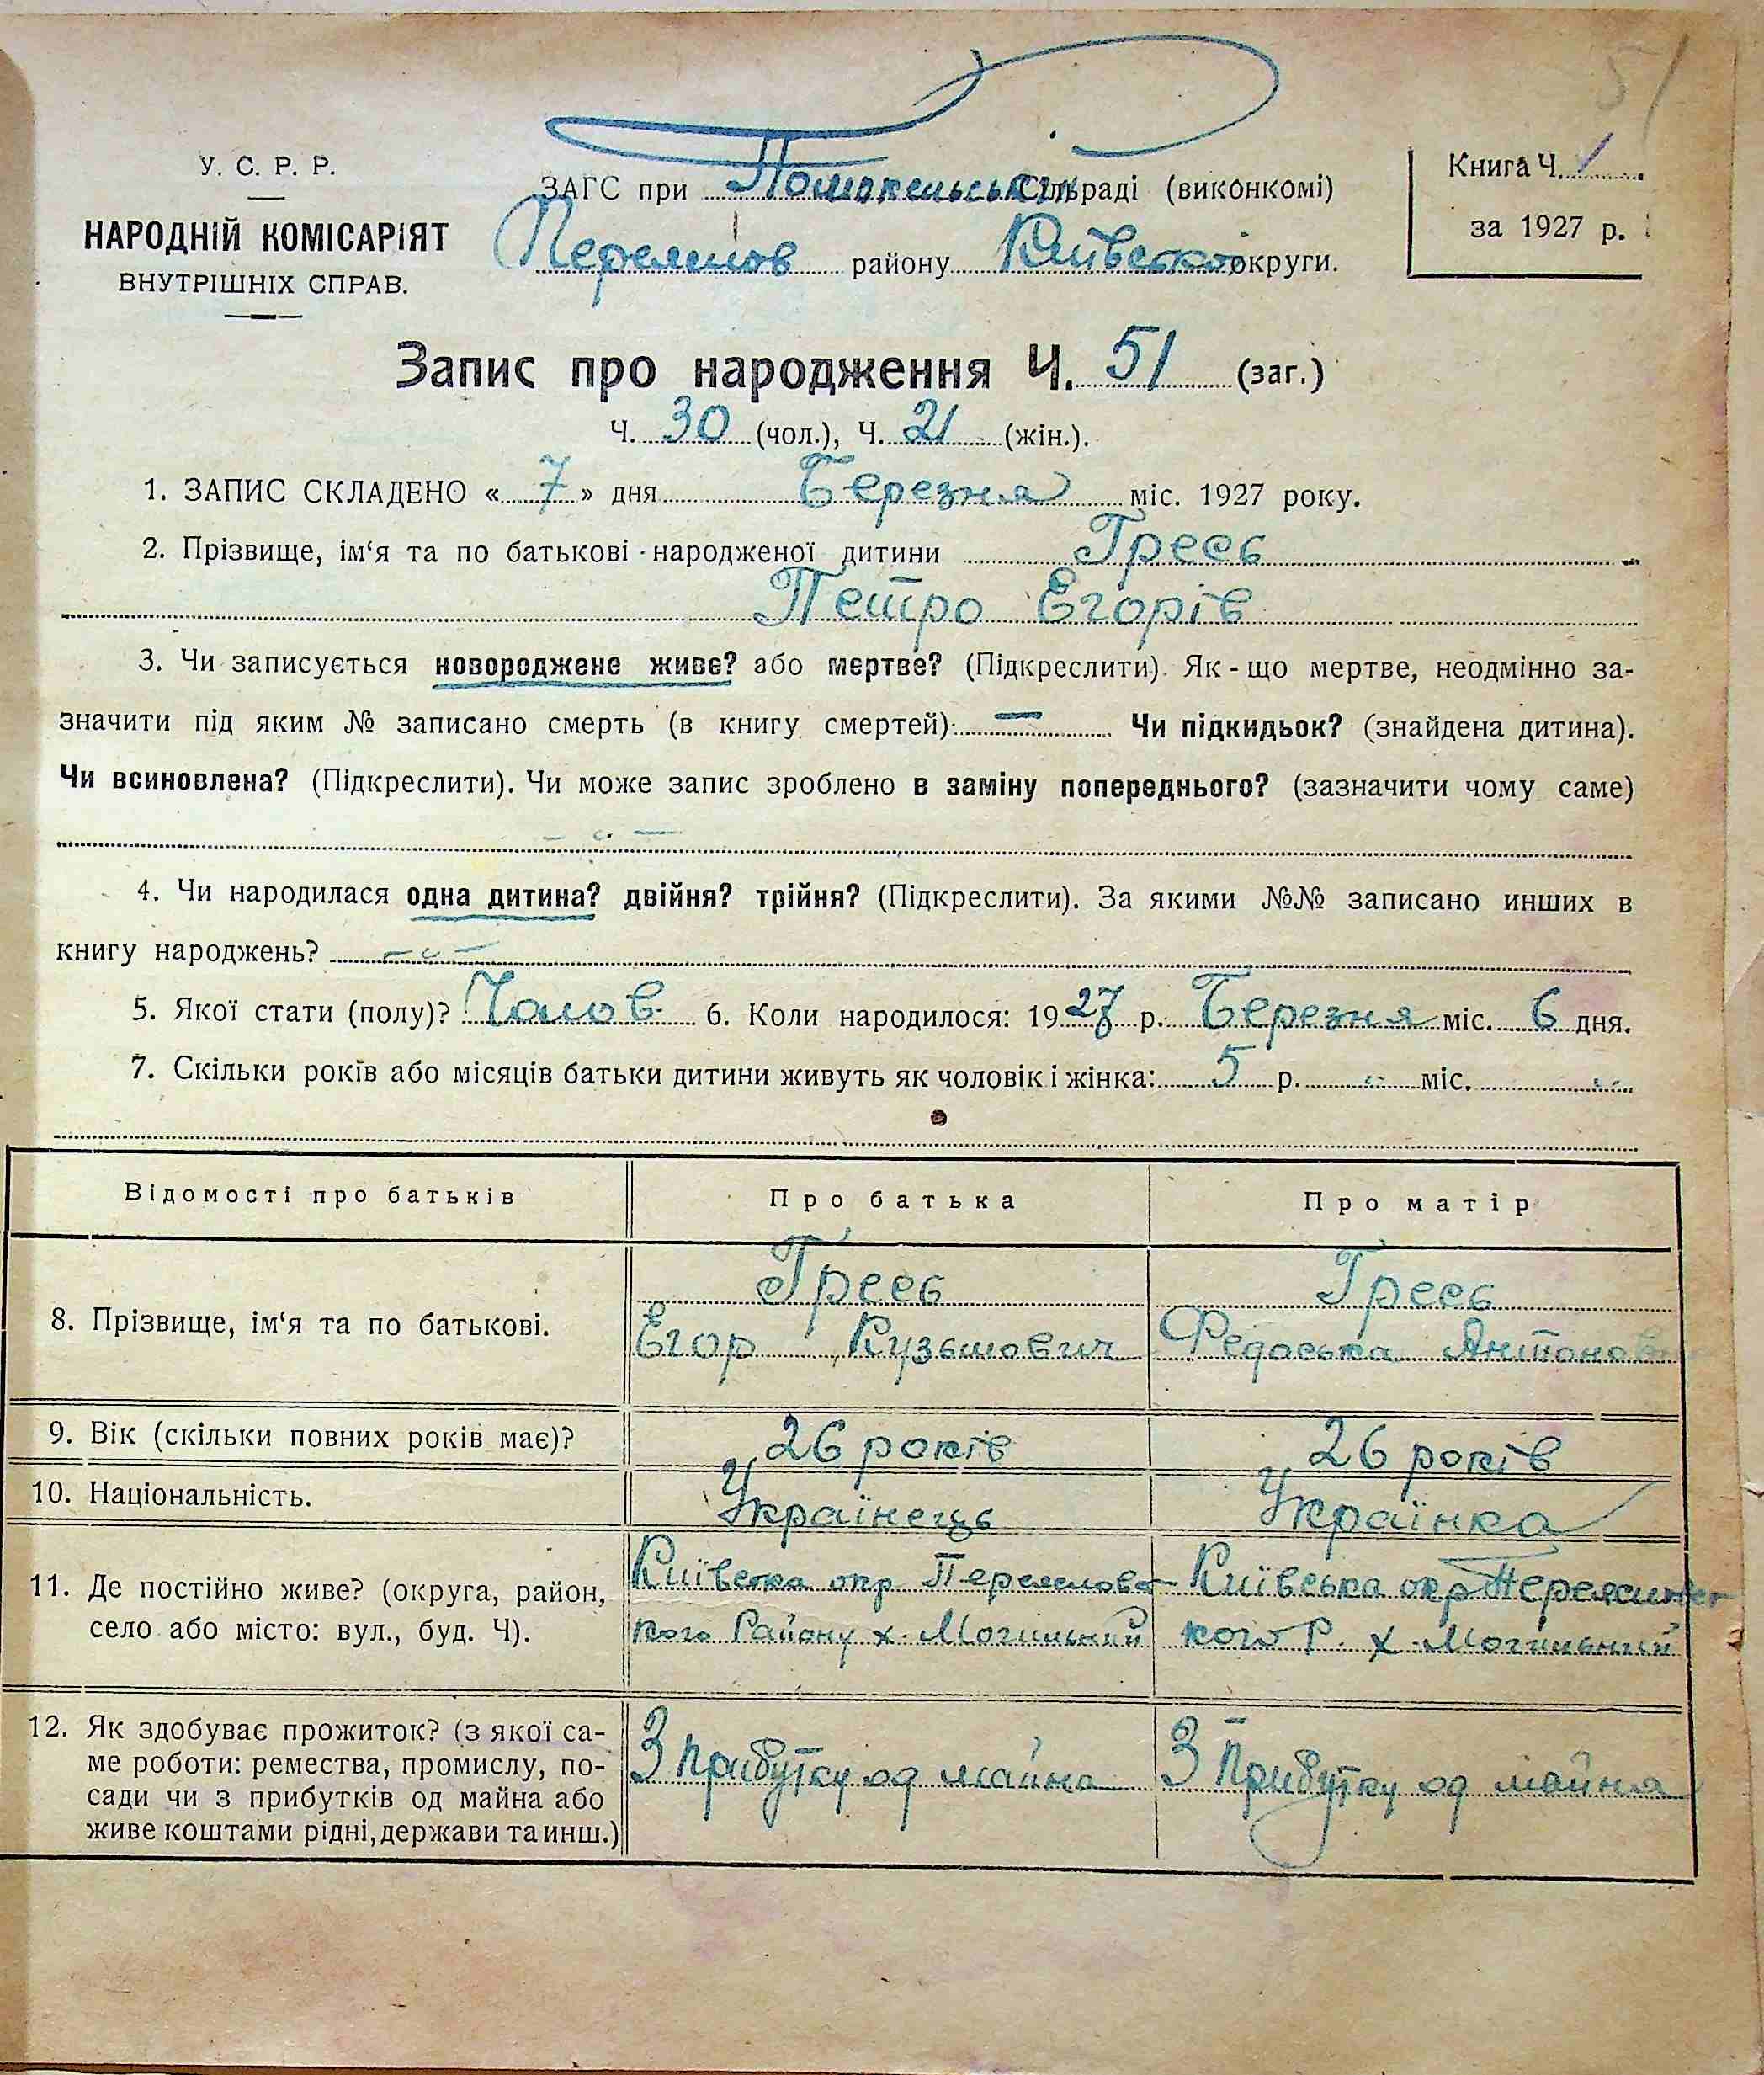 51
У. С. Р. Р.
НАРОДНІЙ КОМІСАРІЯТ
ВНУТРІШНІХ СПРАВ.
ЗАГС при сільраді (виконкомі)
району Київської округи.
Книга Ч.
за 1927 р.
Запис про народження Ч. 51 (заг.)
Ч. 30 (чол.), Ч. 21 (жін.).
1. ЗАПИС СКЛАДЕНО « 7 » дня Березня міс. 1927 року.
2. Прізвище, ім‘я та по батькові народженої дитини Гресь
Петро Єгорів
3. Чи записується новороджене живе? або мертве? (Підкреслити). Як-що мертве, неодмінно за-
значити під яким № записано смерть (в книгу смертей): — Чи підкидьок? (знайдена дитина).
Чи всиновлена? (Підкреслити). Чи може запис зроблено в заміну попереднього? (зазначити чому саме)
4. Чи народилася одна дитина? двійня? трійня? (Підкреслити). За якими №№ записано инших в
книгу народжень?
5. Якої стати (полу)? Чолов. 6. Коли народилося: 1927 р. Березня міс. 6 дня.
7. Скільки років або місяців батьки дитини живуть як чоловік і жінка: 5 р. „ міс. „
Відомості про батьків Про батька Про матір
8. Прізвище, ім‘я та по батькові.
Гресь
Єгор Кузьмович
Гресь
Федоська Антонов
9. Вік (скільки повних років має)? 26 років 26 років
10. Національність. Українець Українка
11. Де постійно живе? (округа, район,
село або місто: вул., буд. Ч).
Київська окр. Переясловс-
кого Району х. Могильний
Київська окр
кого Р. х. Могильний
12. Як здобуває прожиток? (з якої са-
ме роботи: ремества, промислу, по-
сади чи з прибутків од майна або
живе коштами рідні, держави та инш.)
З прибутку од майна
З прибутку од майна